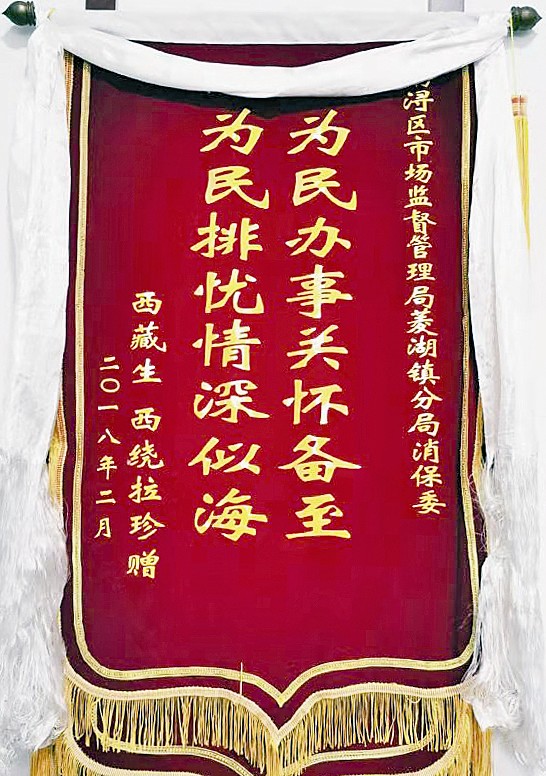 浔区市场监督管理局菱湖镇分局消保委
为民办事关怀备至
为民排忧情深似海
西藏生 西绕拉珍赠
二〇一八年二月